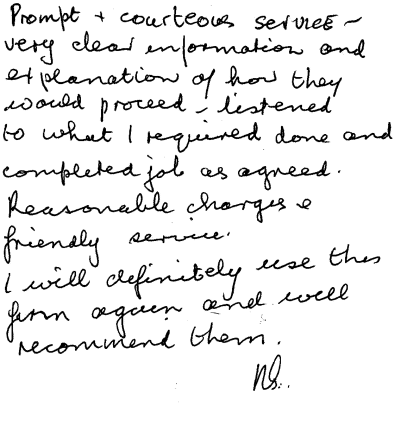 Prompt + courteous service –
very clear information and
explanation of how they
would proceed – listened
to what I required done and
completed job as agreed.
Reasonable charges &
friendly service.
I will definitely use this
firm again and will
recommend them.
NS.